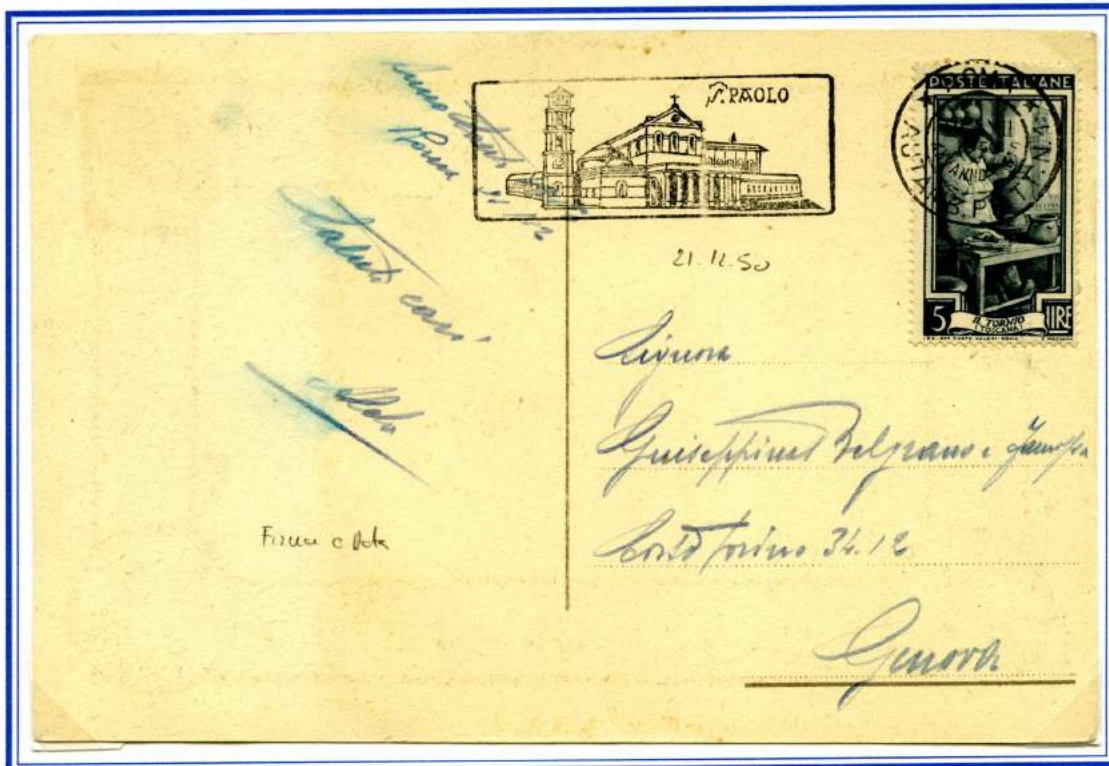 Anno Santo
Roma 21/12
Saluti cari
Firma e Data
S. PAOLO
21.12.50
POSTE ITALIANE
5 LIRE
IL TORNIO
(TOSCANA)
Signora
Giuseppina Belgrano
Corso Torino 34.12
Genova